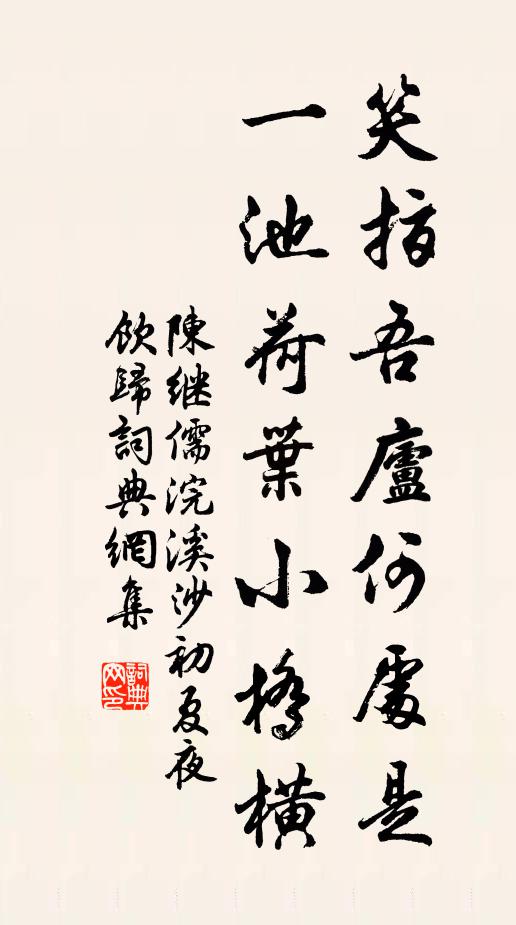 笑指吾廬何處是
一池荷葉小橋橫
陳継儒浣溪沙初夏夜
飲歸詞典網集
詞典网印